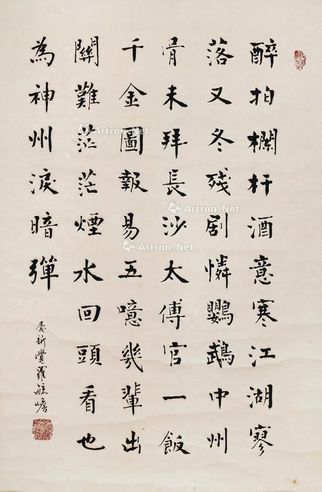 醉拍欄杆酒意寒江湖寥
落又冬殘剧憐鸚鵡中州
骨未拜長沙太傅官一飯
千金圖報易五噫幾輩出
關難茫茫煙水回頭看也
為神州淚暗彈
愛新覺羅毓嶦
Artron.Net
Artron.Net
Artron.Net